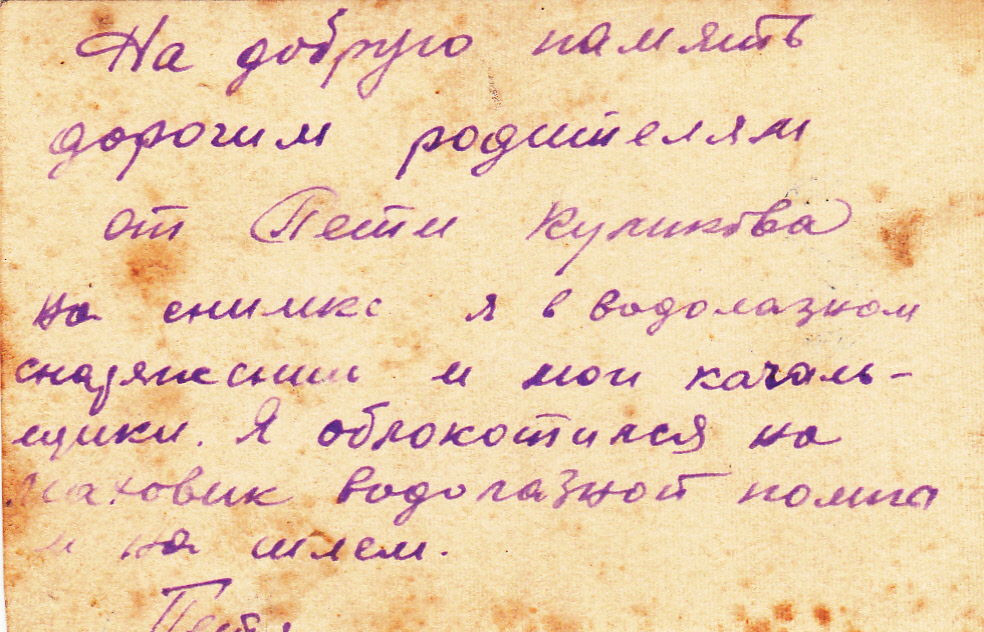 На добрую память
дорогим родителям
от Пети Куликова
на снимке я в водолазном
снаряжении и мои качаль-
щики. Я облокотился на
маховик водолазной помпы
и на шлем.
Петя